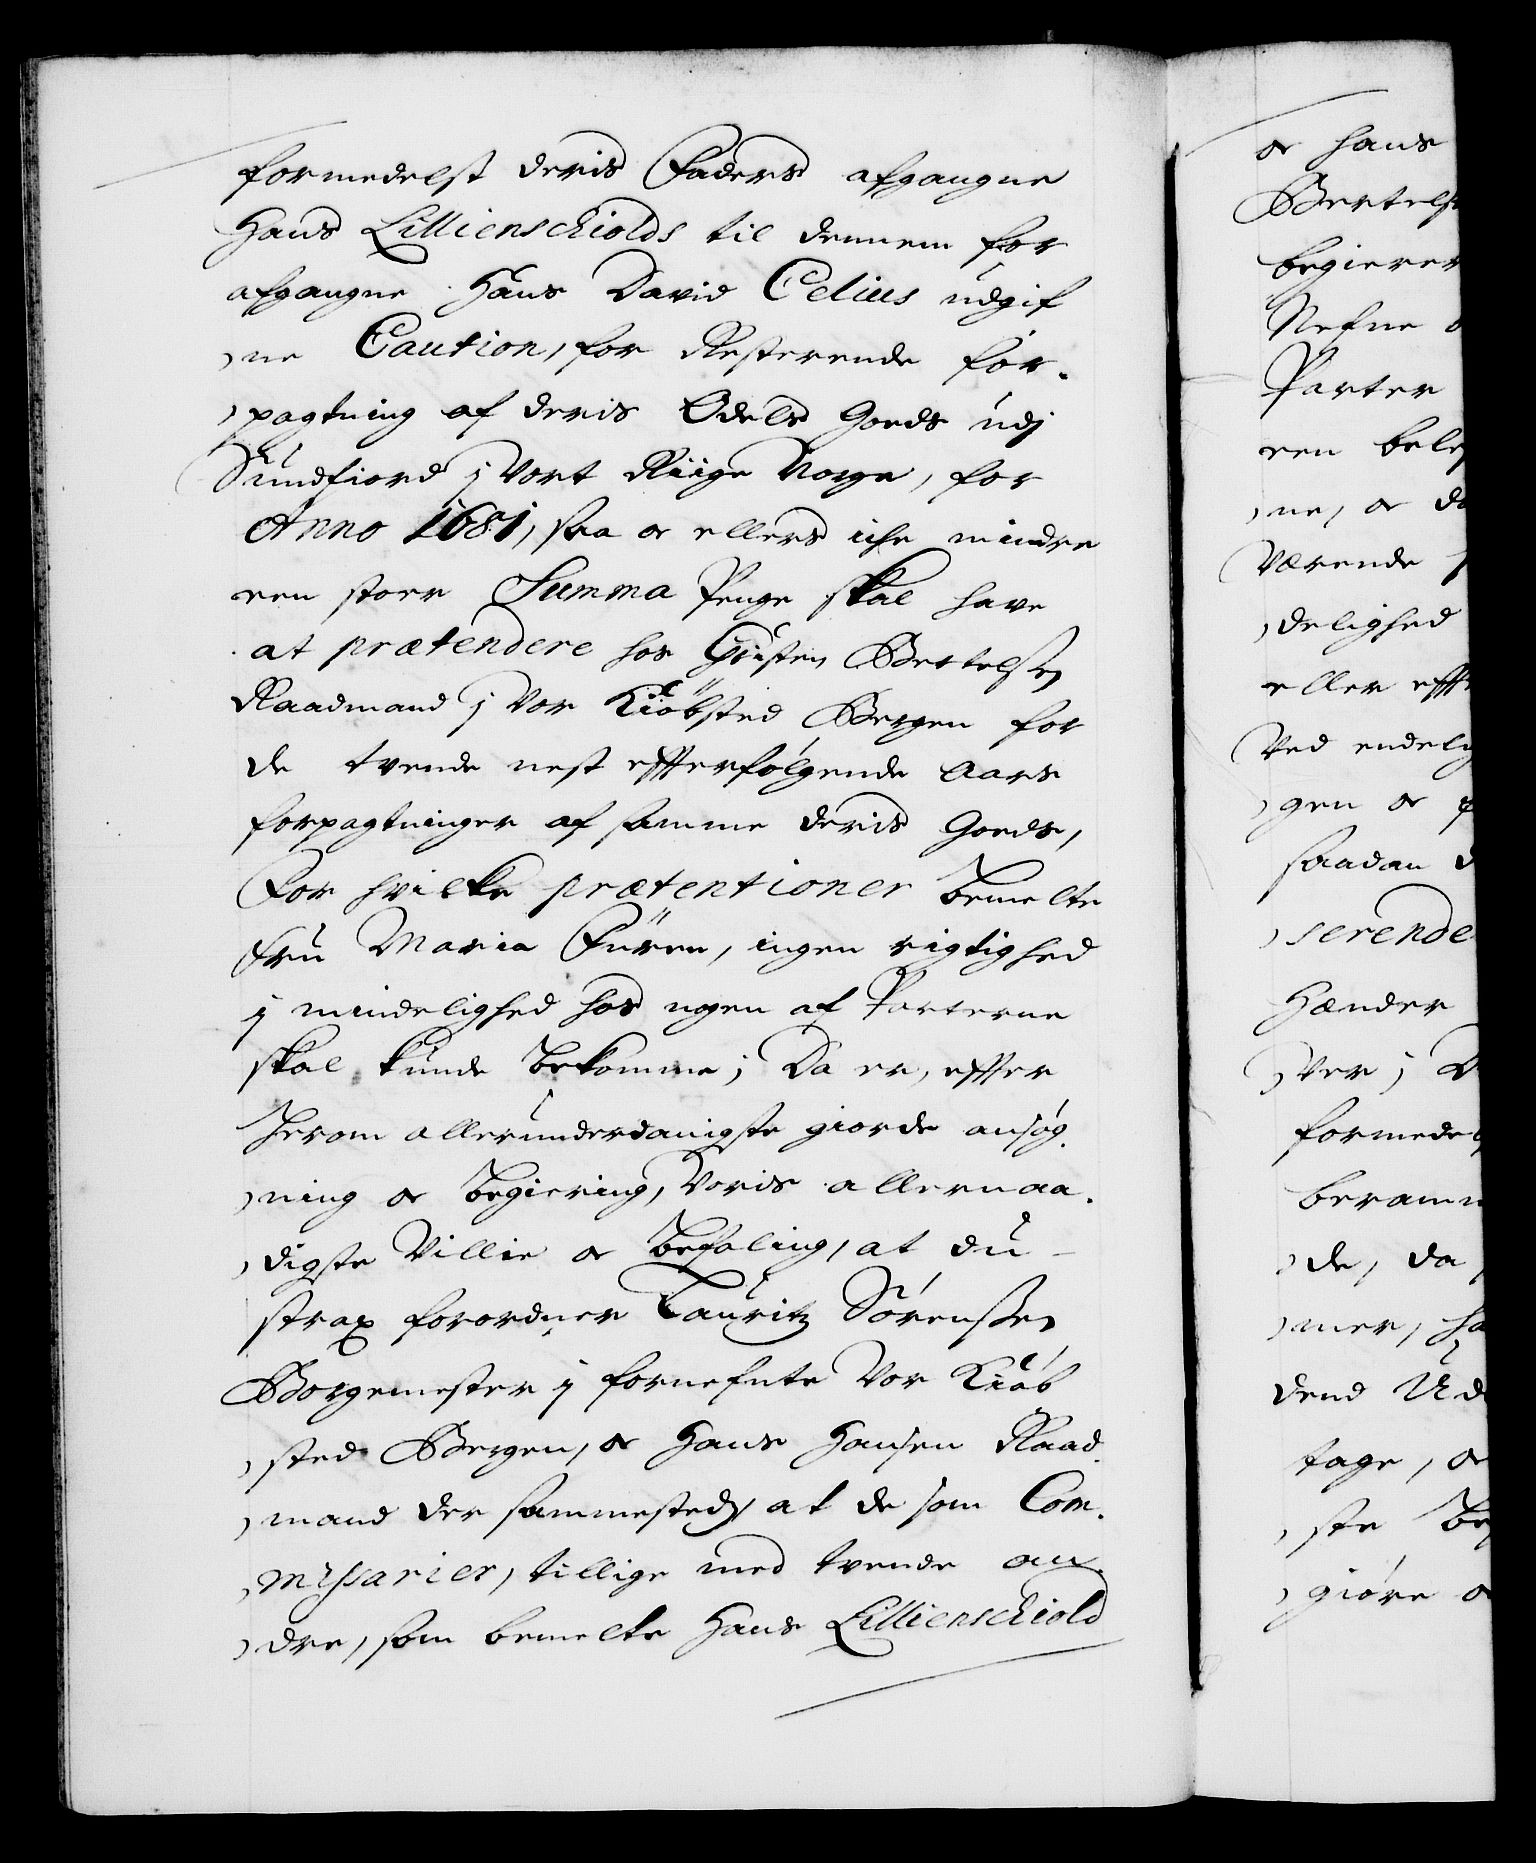 formedelst deris Faders afgangne
Hans Lillienschiolds til dennem for
afgangne Hans David Celius udgif
ne Caution, for Resterende for-
pagtning af deris Odels Goeds udj
Sundfiord j Vort Riige Norge, for
Anno 1681, saa oc ellers iche mindre
een stoer Summa Penge skal have
at prætendere hos Christen Bertelsen
Raadmand j Vor Kiøbsted Bergen for
de tvende nest effterfølgende Aars
forpagtninger af samme deris Goeds,
For hvilke prætentioner bemelte
Fru Maria Füren, ingen rigtighed
j mindelighed hos nogen af Parterne
skal kunde bekomme; Da er, effter
herom allerunderdanigste giorde ansøg-
ning oc begiering, Voris allernaa-
digste Villie oc befaling, at du
strax forordner Lauritz Sørensen
Borgemester j fornefnte Vor Kiøb
sted Bergen, oc Hans Hansen Raad-
mand der sammesteds at de som Com-
missarier, tillige med tvende an-
dre, som bemelte Hans Lillienschiold
oc Hans
Bertels
begierer
Nefne
Parter
een
ne, oc
Værende
delighed
eller
Ved
gen oc
saadan
serende
Hænder
ver j
formede
beram
de, da
mer,
dend
tage, oc
ste
giøre